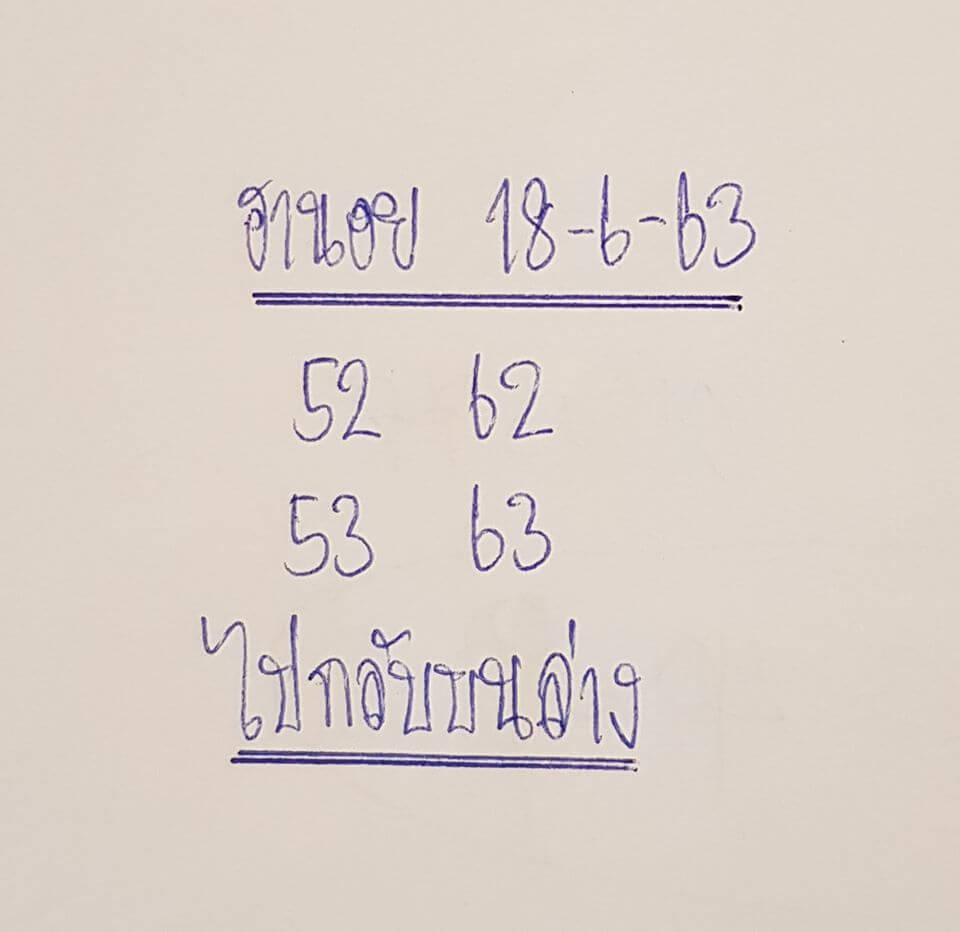 ฮานอย 18-6-63
52 62
53 63
ไปกลับบนล่าง